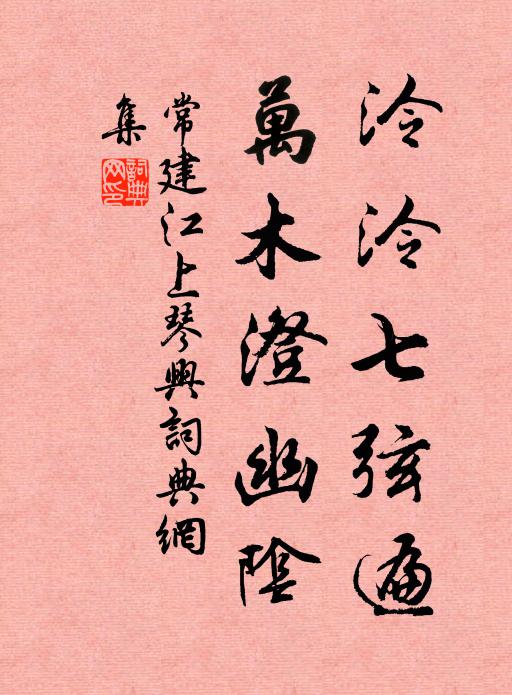 泠泠七弦遍
萬木澄幽陰
常建江上琴興詞典網
集
詞典
网印